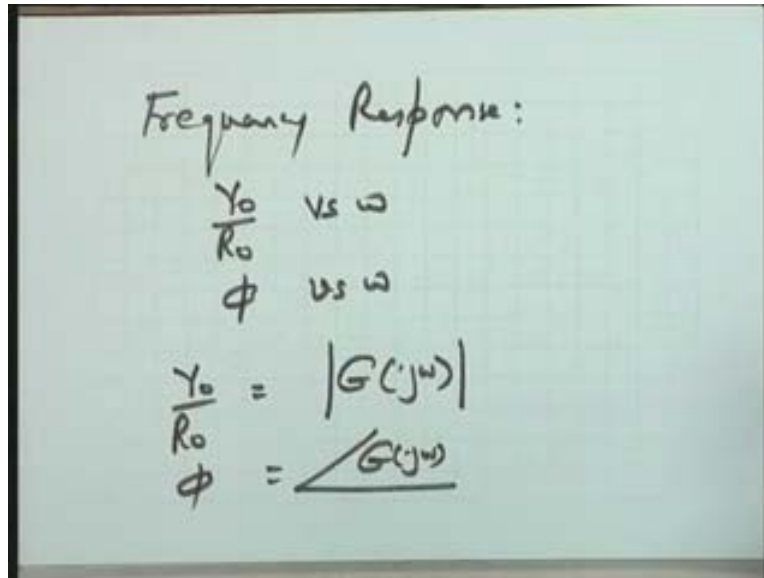 Frequency Response:
Yo/Ro vs ω
φ vs ω
Yo/Ro = |G(jω)|
φ = ∠G(jω)